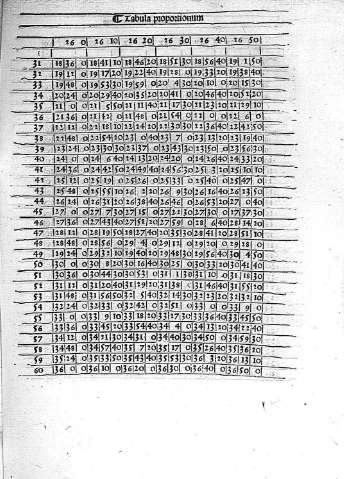 Tabula proportionum
36 0 36 10 36 20 36 30 36 40 36 50
31 18 36 0 18 41 10 18 46 20 18 51 30 18 56 40 19 1 50
32 19 12 0 19 17 20 19 22 40 19 28 0 19 33 20 19 38 40
33 19 48 0 19 53 30 19 59 0 20 4 30 20 10 0 20 15 30
34 20 24 0 20 29 40 20 35 20 20 41 0 20 46 40 20 52 20
35 21 0 0 21 5 50 21 11 40 21 17 30 21 23 20 21 29 10
36 21 36 0 21 42 0 21 48 0 21 54 0 22 0 0 22 6 0
37 22 12 0 22 18 10 22 24 20 22 30 30 22 36 40 22 42 50
38 22 48 0 22 54 20 23 0 40 23 7 0 23 13 20 23 19 40
39 23 24 0 23 30 30 23 37 0 23 43 30 23 50 0 23 56 30
40 24 0 0 24 6 40 24 13 20 24 20 0 24 26 40 24 33 20
41 24 36 0 24 42 50 24 49 40 24 56 30 25 3 20 25 10 10
42 25 12 0 25 19 0 25 26 0 25 33 0 25 40 0 25 47 0
43 25 48 0 25 55 10 26 2 20 26 9 30 26 16 40 26 23 50
44 26 24 0 26 31 20 26 38 40 26 46 0 26 53 20 27 0 40
45 27 0 0 27 7 30 27 15 0 27 22 30 27 30 0 27 37 30
46 27 36 0 27 43 40 27 51 20 27 59 0 28 6 40 28 14 20
47 28 12 0 28 19 50 28 27 40 28 35 30 28 43 20 28 51 10
48 28 48 0 28 56 0 29 4 0 29 12 0 29 20 0 29 28 0
49 29 24 0 29 32 10 29 40 20 29 48 30 29 56 40 30 4 50
50 30 0 0 30 8 20 30 16 40 30 25 0 30 33 20 30 41 40
51 30 36 0 30 44 30 30 53 0 31 1 30 31 10 0 31 18 30
52 31 12 0 31 20 40 31 29 20 31 38 0 31 46 40 31 55 20
53 31 48 0 31 56 50 32 5 40 32 14 30 32 23 20 32 32 10
54 32 24 0 32 33 0 32 42 0 32 51 0 33 0 0 33 9 0
55 33 0 0 33 9 10 33 18 20 33 27 30 33 36 40 33 45 50
56 33 36 0 33 45 20 33 54 40 34 4 0 34 13 20 34 22 40
57 34 12 0 34 21 30 34 31 0 34 40 30 34 50 0 34 59 30
58 34 48 0 34 57 40 35 7 20 35 17 0 35 26 40 35 36 20
59 35 24 0 35 33 50 35 43 40 35 53 30 36 3 20 36 13 10
60 36 0 0 36 10 0 36 20 0 36 30 0 36 40 0 36 50 0